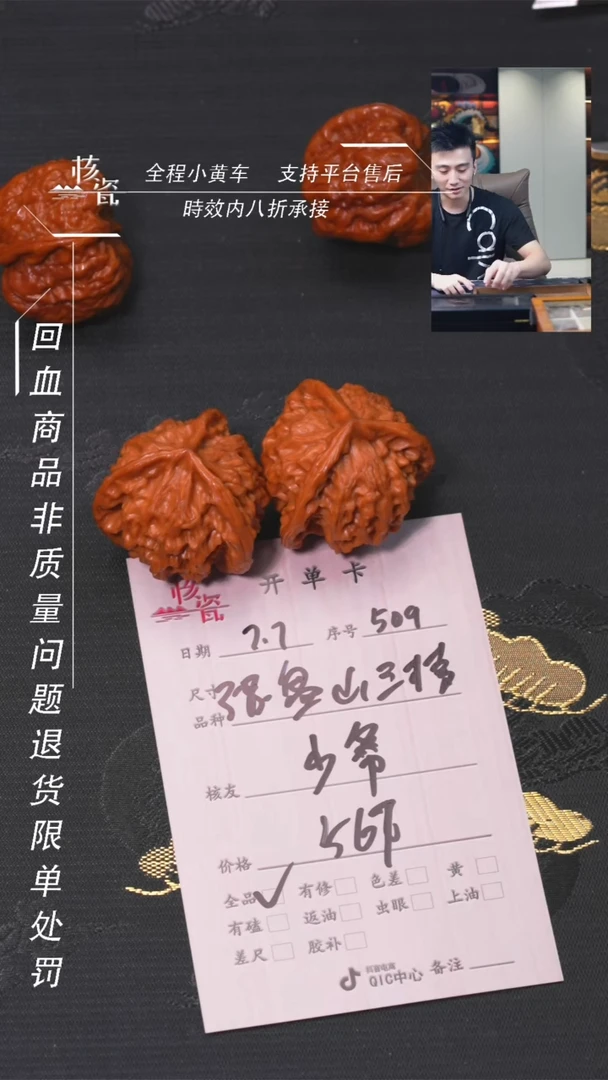 核瓷
全程小黄车 支持平台售后
時效内八折承接
回血商品非质量问题退货限单处罚
Cap
核瓷
开单卡
日期 7.7 序号 509
尺寸
品种 盘山三棱
核友 少爷
价格
全品 ✓ 有修 色差 黄
有磕 返油 虫眼 上油
差尺 胶补
抖音电商
QIC中心 备注